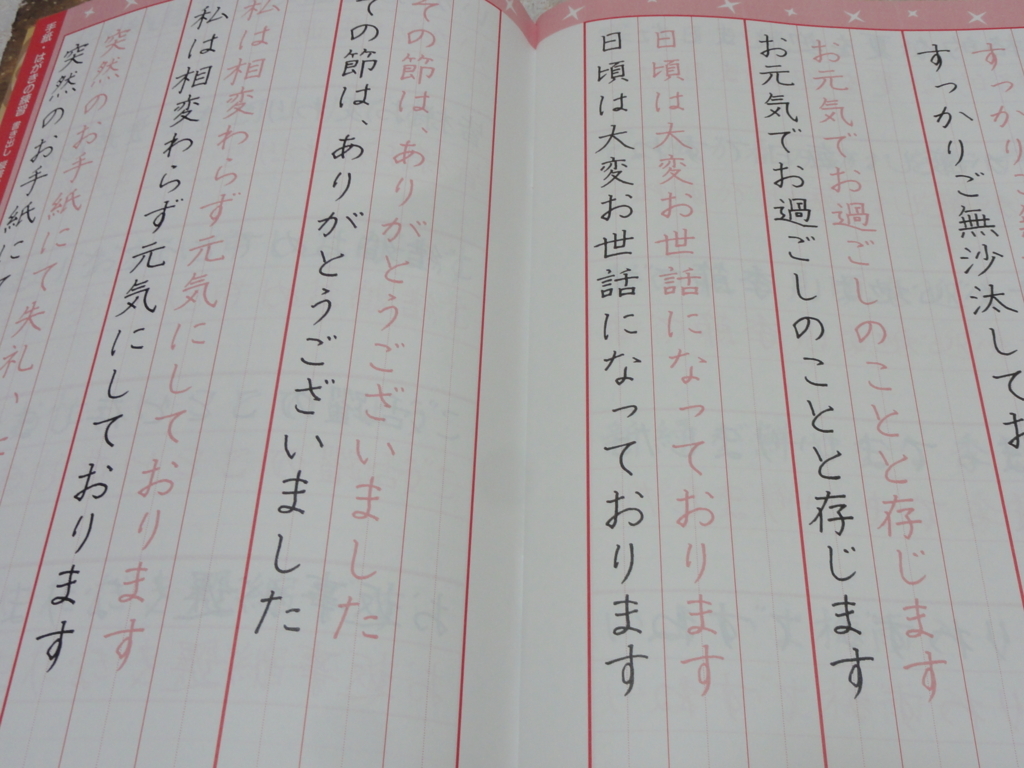 すっかりご無
すっかりご無沙汰してお
お元気でお過ごしのことと存じます
お元気でお過ごしのことと存じます
日頃は大変お世話になっております
日頃は大変お世話になっております
その節は、ありがとうございました
その節は、ありがとうございました
私は相変わらず元気にしております
私は相変わらず元気にしております
突然のお手紙にて失礼い
突然のお手紙にて